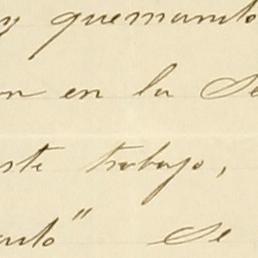 y quemando
n en la Se
ste trabajo,
nto" Se